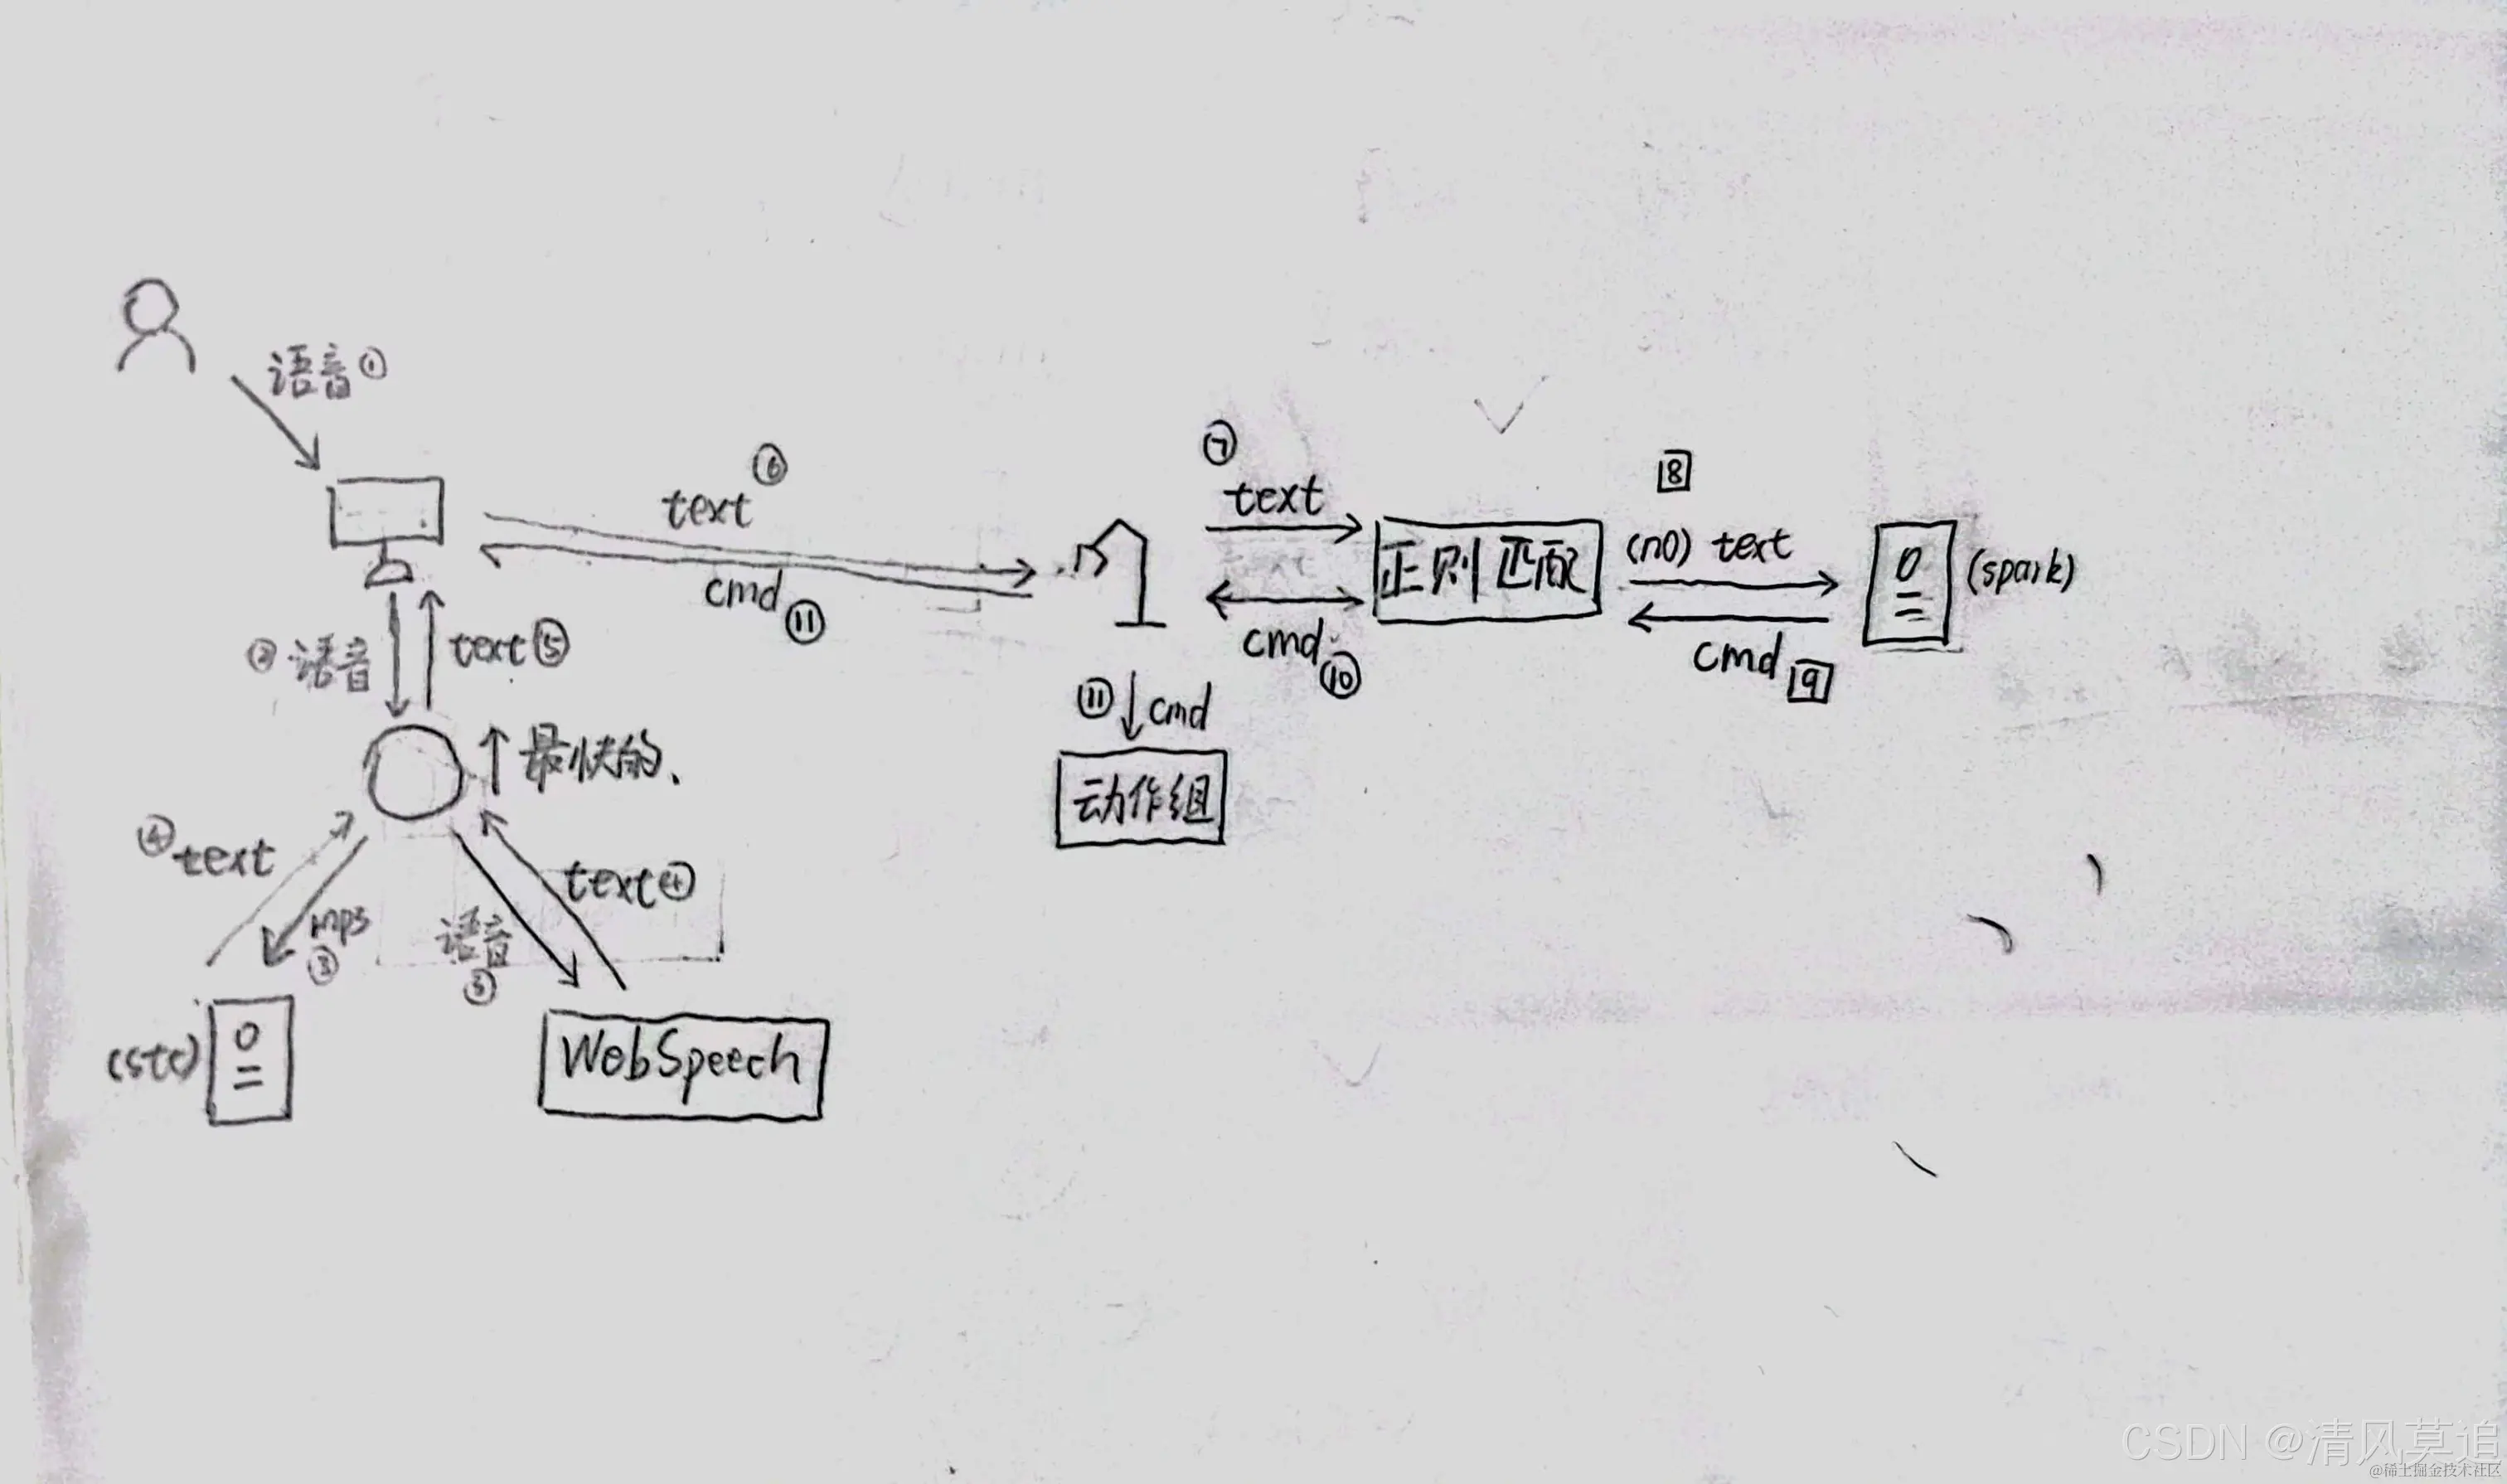 语音①
text⑥
cmd⑪
②语音
text⑤
↑最快的、
④text
mp3
③
语音
③
text④
(stt)
WebSpeech
⑦
text
cmd⑩
正则匹配
8
(no) text
cmd 9
(spark)
⑪↓cmd
动作组
CSDN @清风莫追
@稀土掘金技术社区